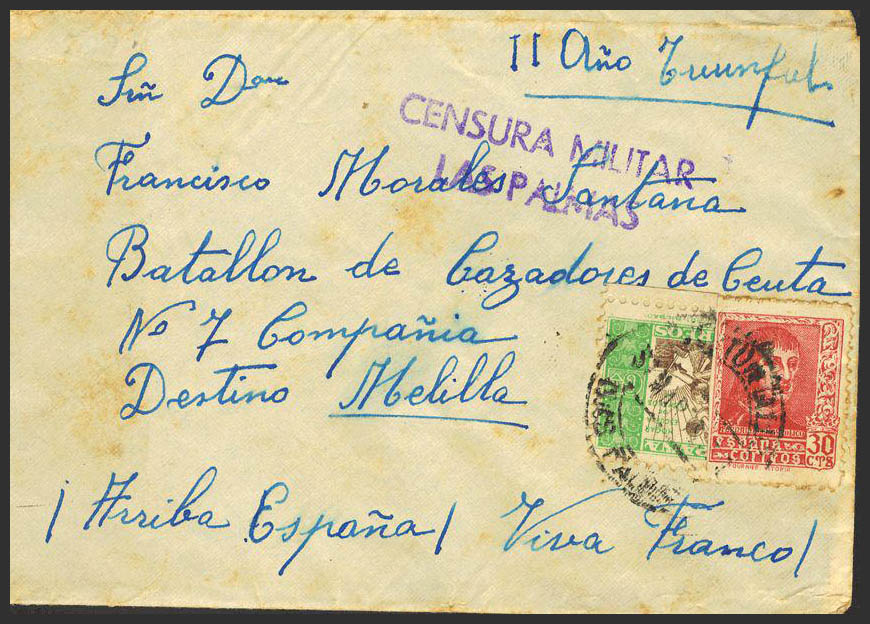 II Año Triunfal
Señ Don
CENSURA MILITAR
LAS PALMAS
Francisco Morales Santana
Batallon de Cazadores de Ceuta
Nº 7 Compañia
Destino Melilla
ESPAÑA
CORREOS
30
CTS
¡Arriba España! Viva Franco!